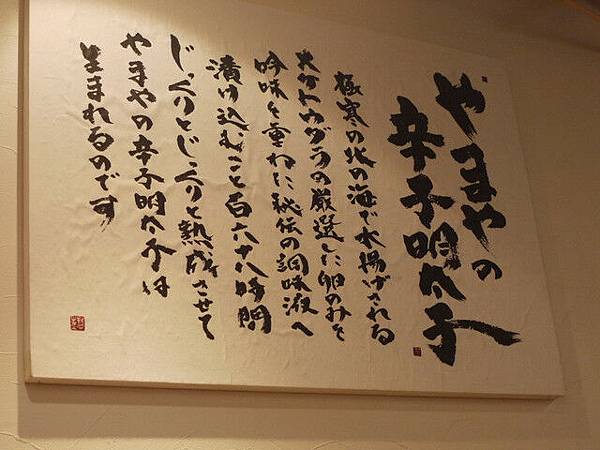 やまやの
辛子明太子
極寒の北の海で水揚げされる
スケトウダラの厳選した卵のみを
吟味を重ねた秘伝の調味液へ
漬け込むこと百六十八時間
じっくりとじっくりと熟成させて
やまやの辛子明太子は
生まれるのです